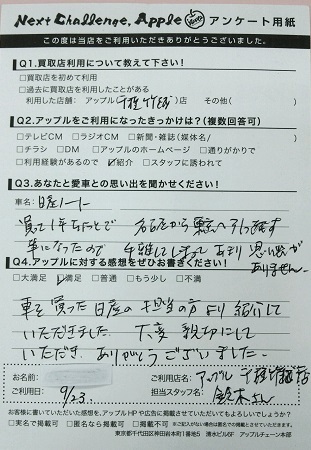 Next Challenge, Apple アンケート用紙
この度は当店をご利用いただきありがとうございました。
Q1.買取店利用について教えて下さい!
□買取店を初めて利用
□過去に買取店を利用したことがある
利用した店舗: アップル(千種竹越)店 その他( )
Q2.アップルをご利用になったきっかけは?(複数回答可)
□テレビCM □ラジオCM □新聞・雑誌(媒体名/ )
□チラシ □DM □アップルのホームページ □通りがかりで
□利用経験があるので ☑紹介 □スタッフに誘われて
Q3.あなたと愛車との思い出を聞かせてください!
車名:日産ノート
買って1年もたたず
名古屋から東京へ引っ越す
事になったので 手離してしまい あまり 思い出が
ありません。
Q4.アップルに対する感想をぜひお書きください!
□大満足 ☑満足 □普通 □もう少し □不満
車を買った日産の担当の方より紹介して
いただきました。大変親切にして
いただき、ありがとうございました。
お名前:
ご利用店名:アップル千種竹越店
ご利用日: 9/23.
担当スタッフ名: 鈴木さん
お客様に書いていただいた感想を、アップルHPや広告に掲載させていただいてもよろしいでしょうか?
□実名で掲載可 □匿名なら掲載可 □掲載不可
※ご記入がない場合は匿名での掲載とさせていただきます。
東京都千代田区神田岩本町1番地5 清水ビル6F アップルチェーン本部